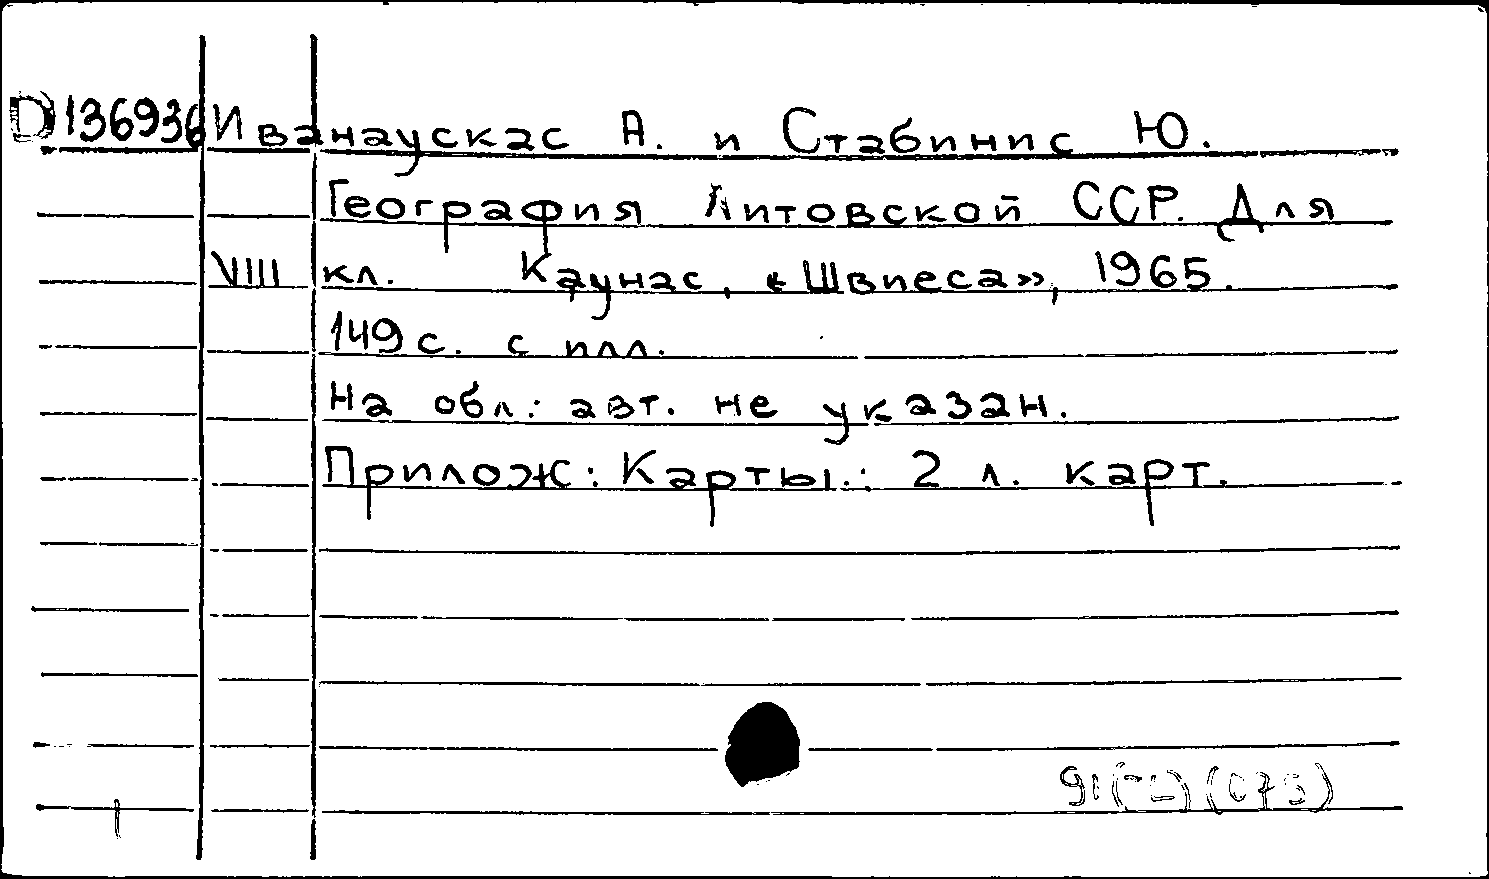 D 136936 Иванаускас А. и Стабинис Ю.
География Литовской ССР. Для
VIII кл. Каунас, «Швиеса», 1965.
149 с. с илл.
На обл.: авт. не указан.
Прилож: Карты.: 2 л. карт.